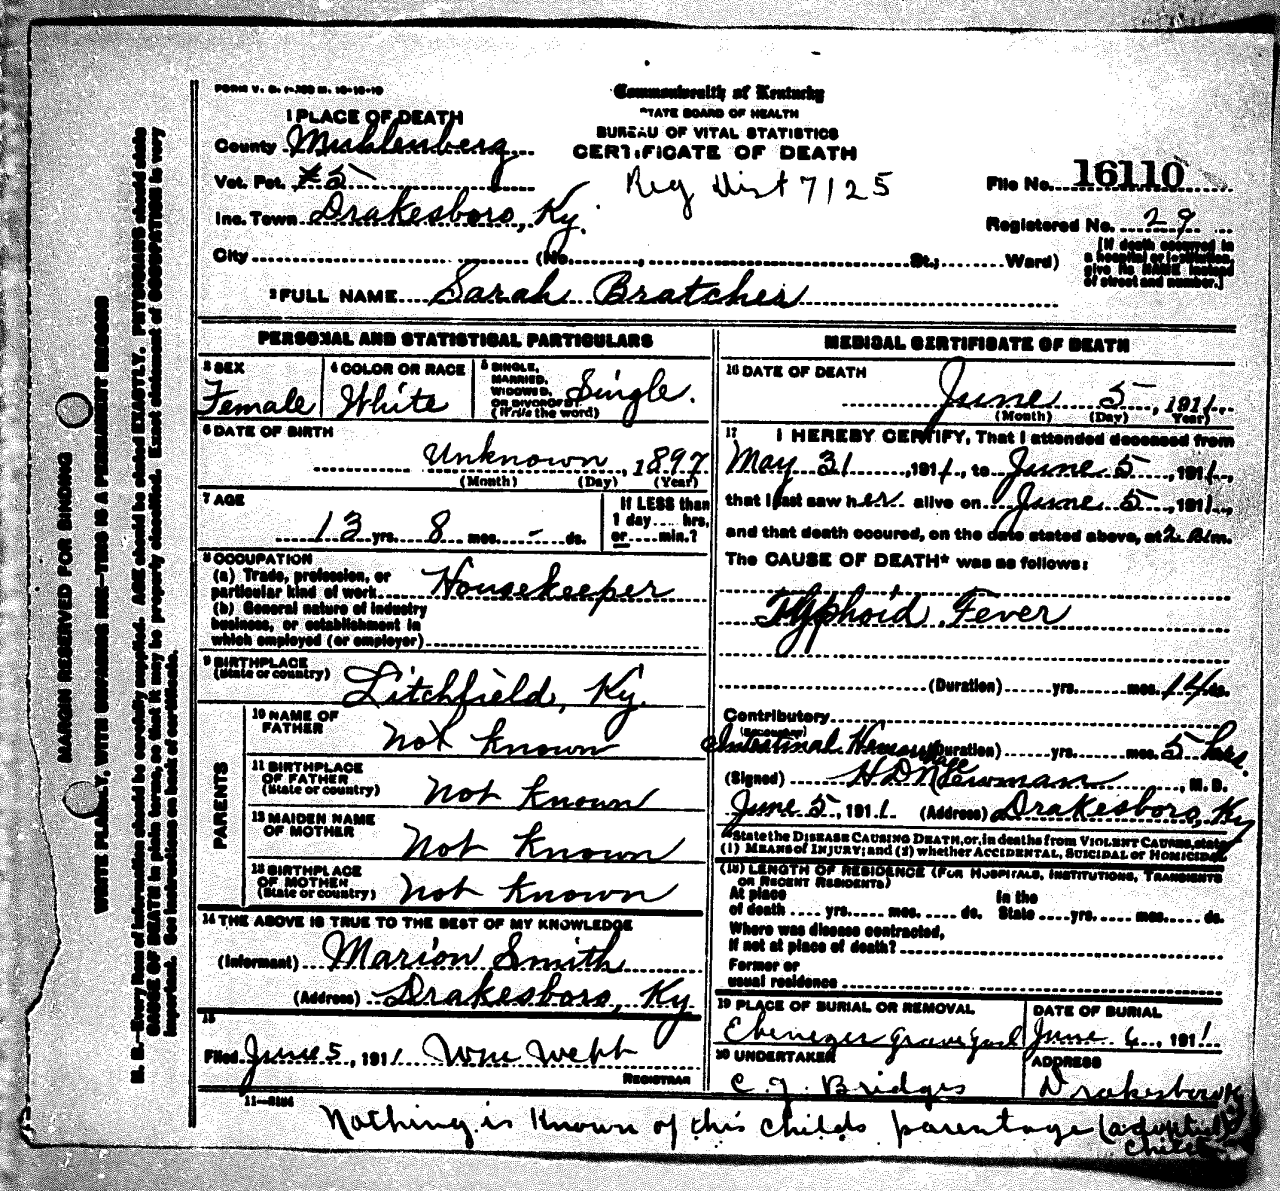 FORM V. S. 1-
Commonwealth of Kentucky
STATE BOARD OF HEALTH
BUREAU OF VITAL STATISTICS
CERTIFICATE OF DEATH
1 PLACE OF DEATH
County Muhlenberg
Vot. Pct. #5
Inc. Town Drakesboro, Ky.
City (No. , St.; Ward)
Reg Dist 7125
File No. 16110
Registered No. 29
[If death occurred in
a hospital or institution,
give its NAME instead
of street and number.]
2 FULL NAME Sarah Bratcher
PERSONAL AND STATISTICAL PARTICULARS
3 SEX
Female
4 COLOR OR RACE
White
5 SINGLE,
MARRIED,
WIDOWED,
OR DIVORCED
(Write the word)
Single.
6 DATE OF BIRTH
Unknown, 1897
(Month) (Day) (Year)
7 AGE
13 yrs. 8 mos. - ds.
If LESS than
1 day .... hrs,
or ....min.?
8 OCCUPATION
(a) Trade, profession, or
particular kind of work Housekeeper
(b) General nature of industry
business, or establishment in
which employed (or employer)
9 BIRTHPLACE
(State or country)
Litchfield, Ky.
PARENTS
10 NAME OF
FATHER
not known
11 BIRTHPLACE
OF FATHER
(State or country)
Not Known
12 MAIDEN NAME
OF MOTHER
Not Known
13 BIRTHPLACE
OF MOTHER
(State or country)
Not Known
14 THE ABOVE IS TRUE TO THE BEST OF MY KNOWLEDGE
(Informant) Marion Smith
(Address) Drakesboro, Ky.
15
Filed June 5, 1911 Wm Webb
REGISTRAR
11-
MEDICAL CERTIFICATE OF DEATH
16 DATE OF DEATH
June 5, 1911
(Month) (Day) Year)
17 I HEREBY CERTIFY, That I attended deceased from
May 31, 1911, to June 5, 1911,
that I last saw her alive on June 5, 1911,
and that death occured, on the date stated above, at 2 m.
The CAUSE OF DEATH* was as follows:
Typhoid Fever
(Duration) yrs. mos. 14 ds.
Contributory
(Secondary)
Intestinal Hemorrhage (Duration) yrs. mos. 5 hrs.
(Signed) H D Newman, M. D.
June 5, 1911. (Address) Drakesboro, Ky
*State the DISEASE CAUSING DEATH, or, in deaths from VIOLENT CAUSES, state
(1) MEANS of INJURY; and (2) whether ACCIDENTAL, SUICIDAL or HOMICIDAL
(18) LENGTH OF RESIDENCE (FOR HOSPITALS, INSTITUTIONS, TRANSIENTS
OR RECENT RESIDENTS)
At place In the
of death .... yrs..... mos. .... ds. State ....yrs..... mos..... ds.
Where was disease contracted,
If not at place of death?
Former or
usual residence
19 PLACE OF BURIAL OR REMOVAL
Ebenezer graveyard
DATE OF BURIAL
June 6, 1911
20 UNDERTAKER
C. J. Bridges
ADDRESS
Drakesboro K
Nothing is Known of this childs parentage (adopted
child
MARGIN RESERVED FOR BINDING
WRITE PLAINLY, WITH UNFADING INK—THIS IS A PERMANENT RECORD
N. B.—Every item of information should be carefully supplied. AGE should be stated EXACTLY. PHYSICIANS should state
CAUSE OF DEATH in plain terms, so that it may be properly classified. Exact statement of OCCUPATION is very
important. See instructions on back of certificate.